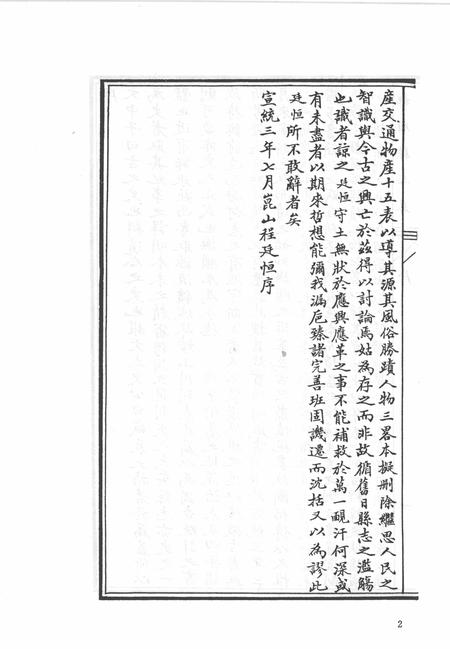 產交通物產十五表以導其源其風俗勝蹟人物三畧本擬刪除繼思人民之
智識與今古之興亡於茲得以討論焉姑為存之而非故循舊日縣志之濫觴
也識者諒之廷恒守土無狀於應興應革之事不能補救於萬一靦汗何深或
有未盡者以期來哲想能彌我漏卮臻諸完善班固譏遷而沈括又以為謬此
廷恒所不敢辭者矣
宣統三年七月崑山程廷恒序
2